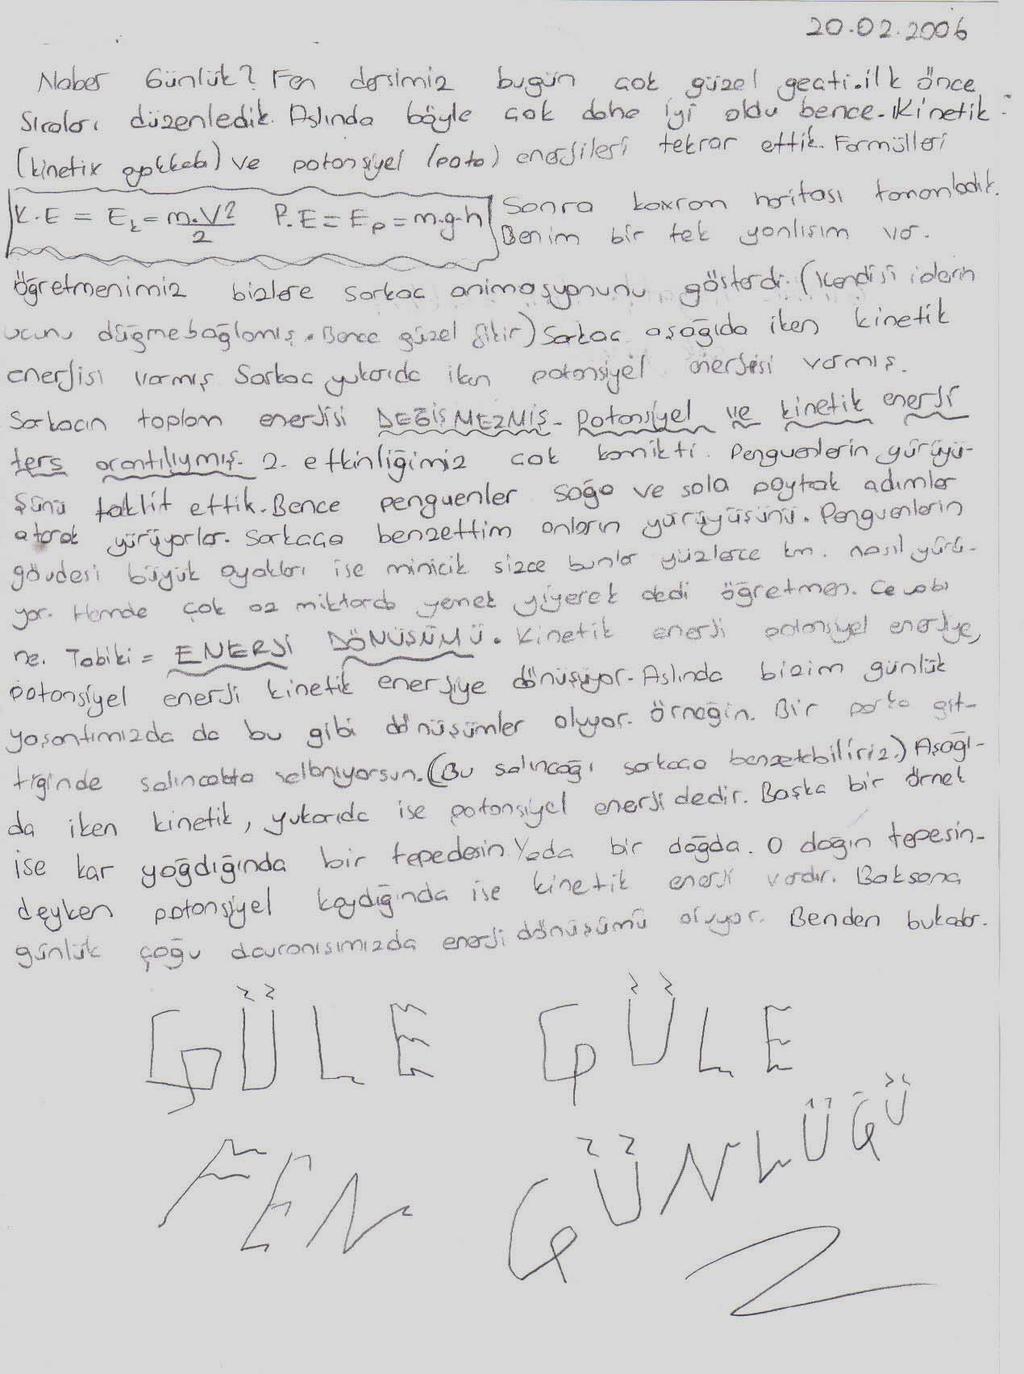 20.02.2006
Naber Günlük? Fen dersimiz bugün çok güzel geçti.ilk önce
Sıraları düzenledik. Aslında böyle çok daha iyi oldu bence. Kinetik
(kinetik ayakkabı) ve potansiyel (pato) enerjileri tekrar ettik. Formülleri
K.E = Ek = m.V²/2 P.E = Ep = m.g.h
Sonra kavram haritası tamamladık.
Benim bir tek yanlışım var.
Öğretmenimiz bizlere Sarkaç animasyonunu gösterdi. (Kendisi iplerin
ucunu düğme bağlamış. Bence güzel fikir) Sarkaç aşağıda iken kinetik
enerjisi varmış Sarkaç yukarıda iken potansiyel enerjisi varmış.
Sarkacın toplam enerjisi DEĞİŞMEZMİŞ. Potansiyel ve kinetik enerji
ters orantılıymış. 2. etkinliğimiz çok komikti. Penguenlerin yürüyü-
şünü taklit ettik. Bence penguenler sağa ve sola paytak adımlar
atarak yürüyorlar. Sarkaca benzettim onların yürüyüşünü. Penguenlerin
gövdesi büyük ayakları ise minicik sizce bunlar yüzlerce km. nasıl yürü-
yor. Hemde çok az miktarda yemek yiyerek dedi öğretmen. Cevabı
ne. Tabiki = ENERJİ DÖNÜŞÜMÜ. Kinetik enerji potansiyel enerjiye,
potansiyel enerji kinetik enerjiye dönüşüyor. Aslında bizim günlük
yaşantımızda da bu gibi dönüşümler oluyor. Örneğin. Bir parka git-
tiğinde salıncakta sallanıyorsun. (Bu salıncağı sarkaca benzetebiliriz.) Aşağı-
da iken kinetik, yukarıda ise potansiyel enerji dedir. Başka bir örnek
ise kar yağdığında bir tepedesin Yada bir dağda. O dağın tepesin-
deyken potansiyel kaydığında ise kinetik enerji vardır. Baksana
günlük çoğu davranışımızda enerji dönüşümü oluyor. Benden bukadar.
GÜLE GÜLE
FEN GÜNLÜĞÜ